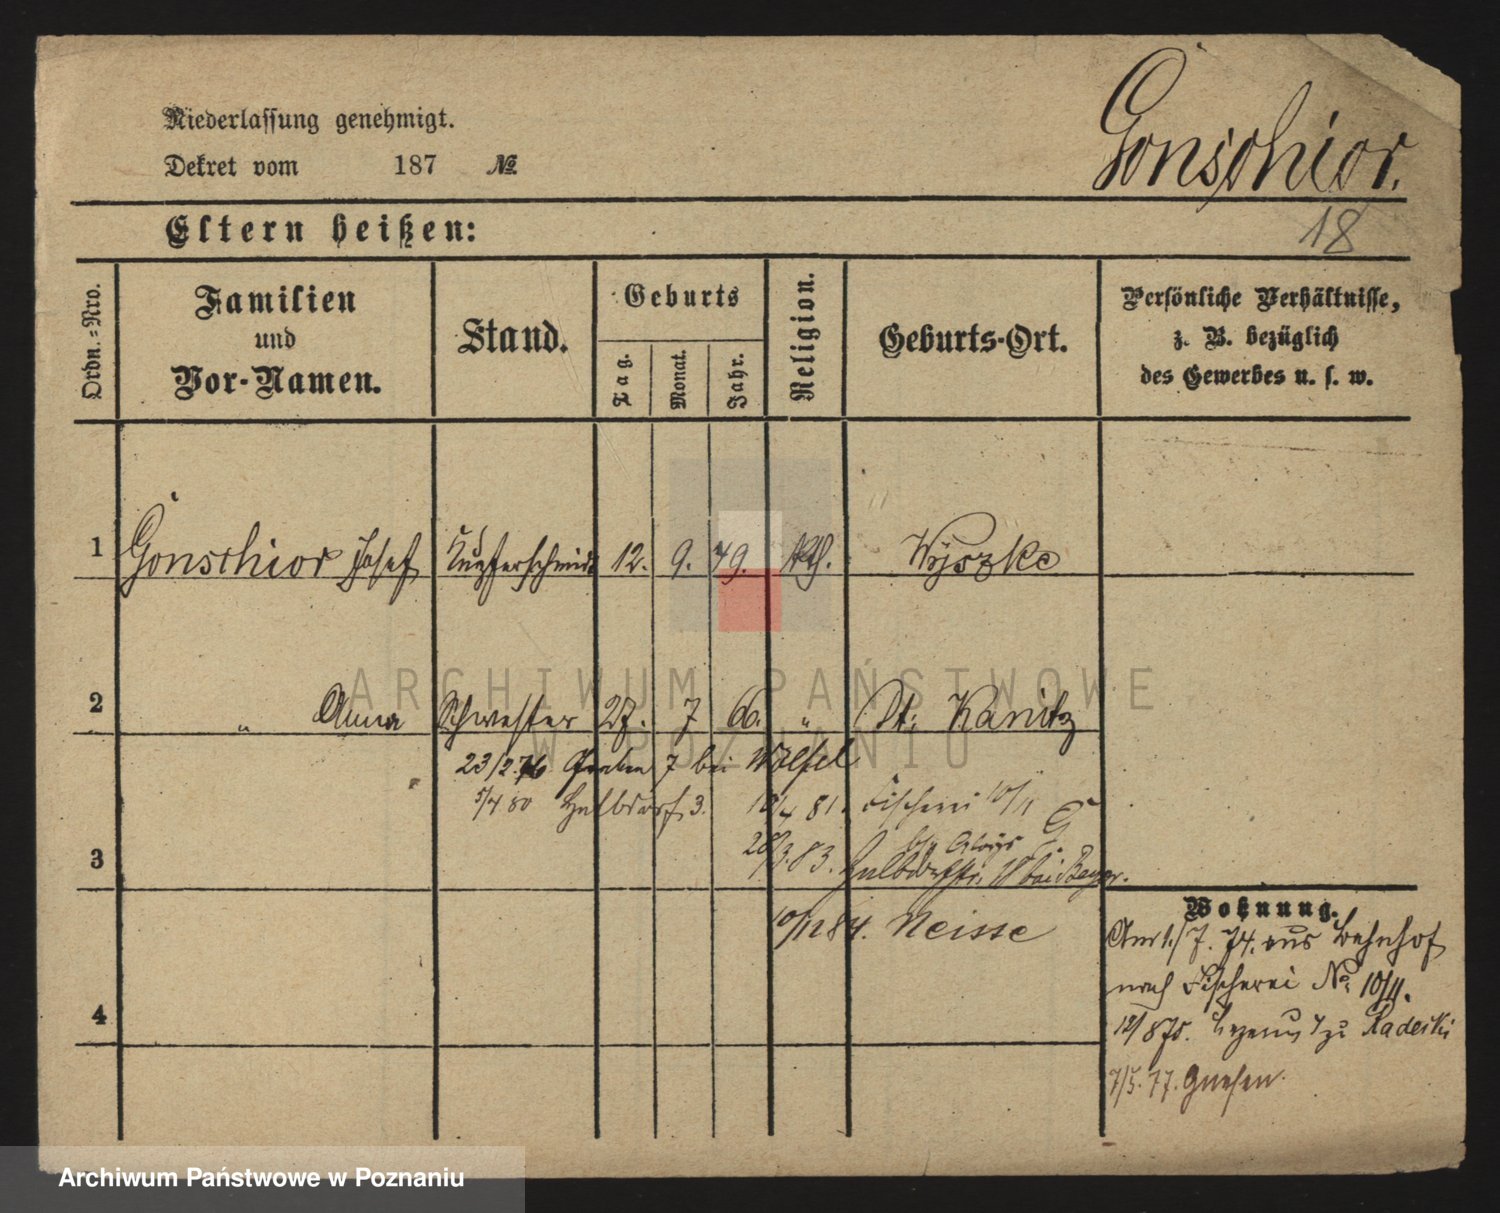 Niederlassung genehmigt.
Dekret vom 187 №
Gonschior.
18
Eltern heißen:
Ordn.=Nro.
Familien
und
Vor-Namen.
Stand.
Geburts
Tag.
Monat.
Jahr.
Religion.
Geburts-Ort.
Persönliche Verhältnisse,
z. B. bezüglich
des Gewerbes u. s. w.
1 Gonschior Josef Kupferschmidt 12. 9. 49. kth. Wyszke
2 " Anna Schwester 27. 7 66. " Dt. Kanitz
23/2.76 Graben 7 bei Wölfel
5/4 80 Halbdorf 3. 18/4 81. Fischerei 10/11
bei Aloys G.
3 28/3.83. Halbdorfstr. 18 bei Beyer.
10/11 84. Neisse
Wohnung.
7. 74. aus Bahnhof
nach Fischerei No. 10/11.
4 12/8 75. zu Radecki
7/5. 77. Gnesen.
ARCHIWUM PAŃSTWOWE
W POZNANIU
Archiwum Państwowe w Poznaniu